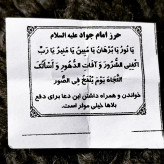 حرز امام جواد علیه السلام
یا نُورُ یا بُرْهانُ یا مُبینُ یا مُنیرُ یا رَبِّ
اکْفِنی الشُّرُورَ وَ آفاتِ الدُّهُورِ وَ أسْألُکَ
النَّجاةَ یَوْمَ یُنْفَخُ فِی الصُّورِ
خواندن و همراه داشتن این دعا برای دفع
بلاها خیلی موثر است.